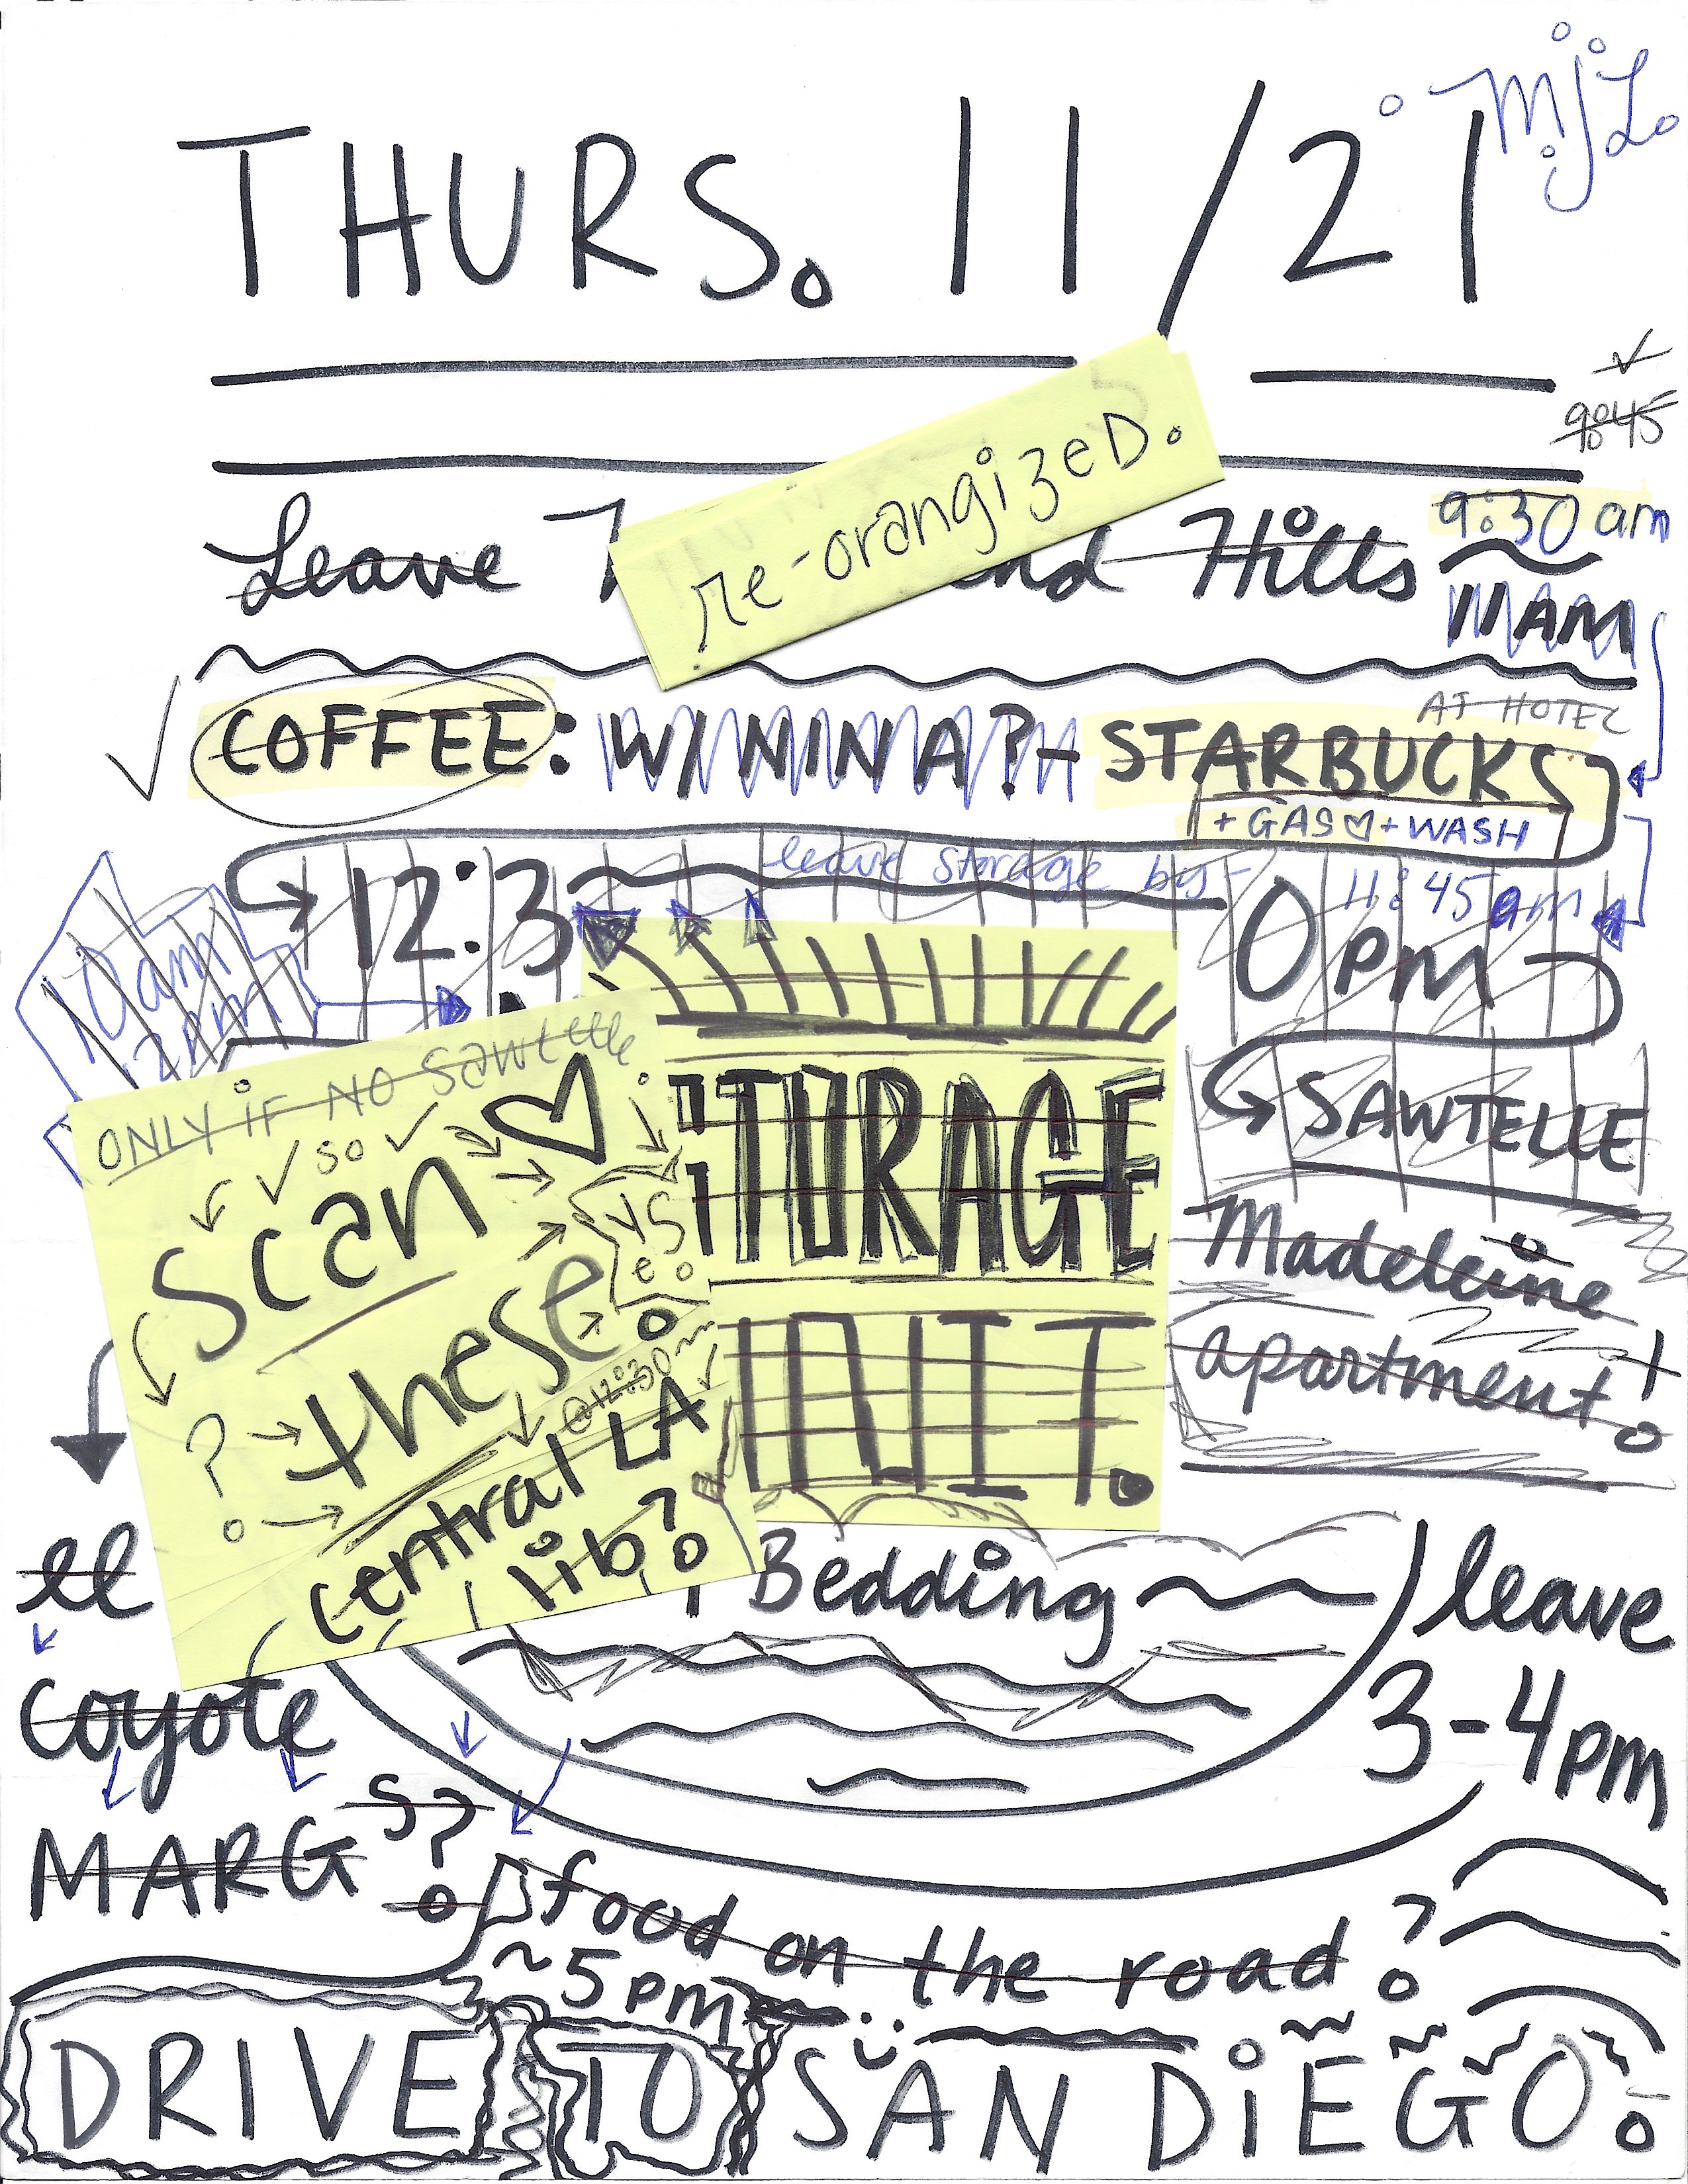 mjL.
THURS. 11/21
9:45
re-orangizeD.
Leave
Hills
9:30 am
11AM
AT HOTEL
COFFEE: W/ NINA? - STARBUCKS
+ GAS + WASH
leave storage by - 11:45 am
12:3 0 PM
10am
2pm
ONLY iF NO SAWtelle
SO
Scan
these
YES
? .
@12:30
Central LA
lib?
STORAGE
UNIT.
SAWTELLE
Madeleine
apartment!
el
coyote
MARGS?
Bedding
leave
3-4pm
food on the road?
~5pm
DRIVE TO SAN DiEGO.